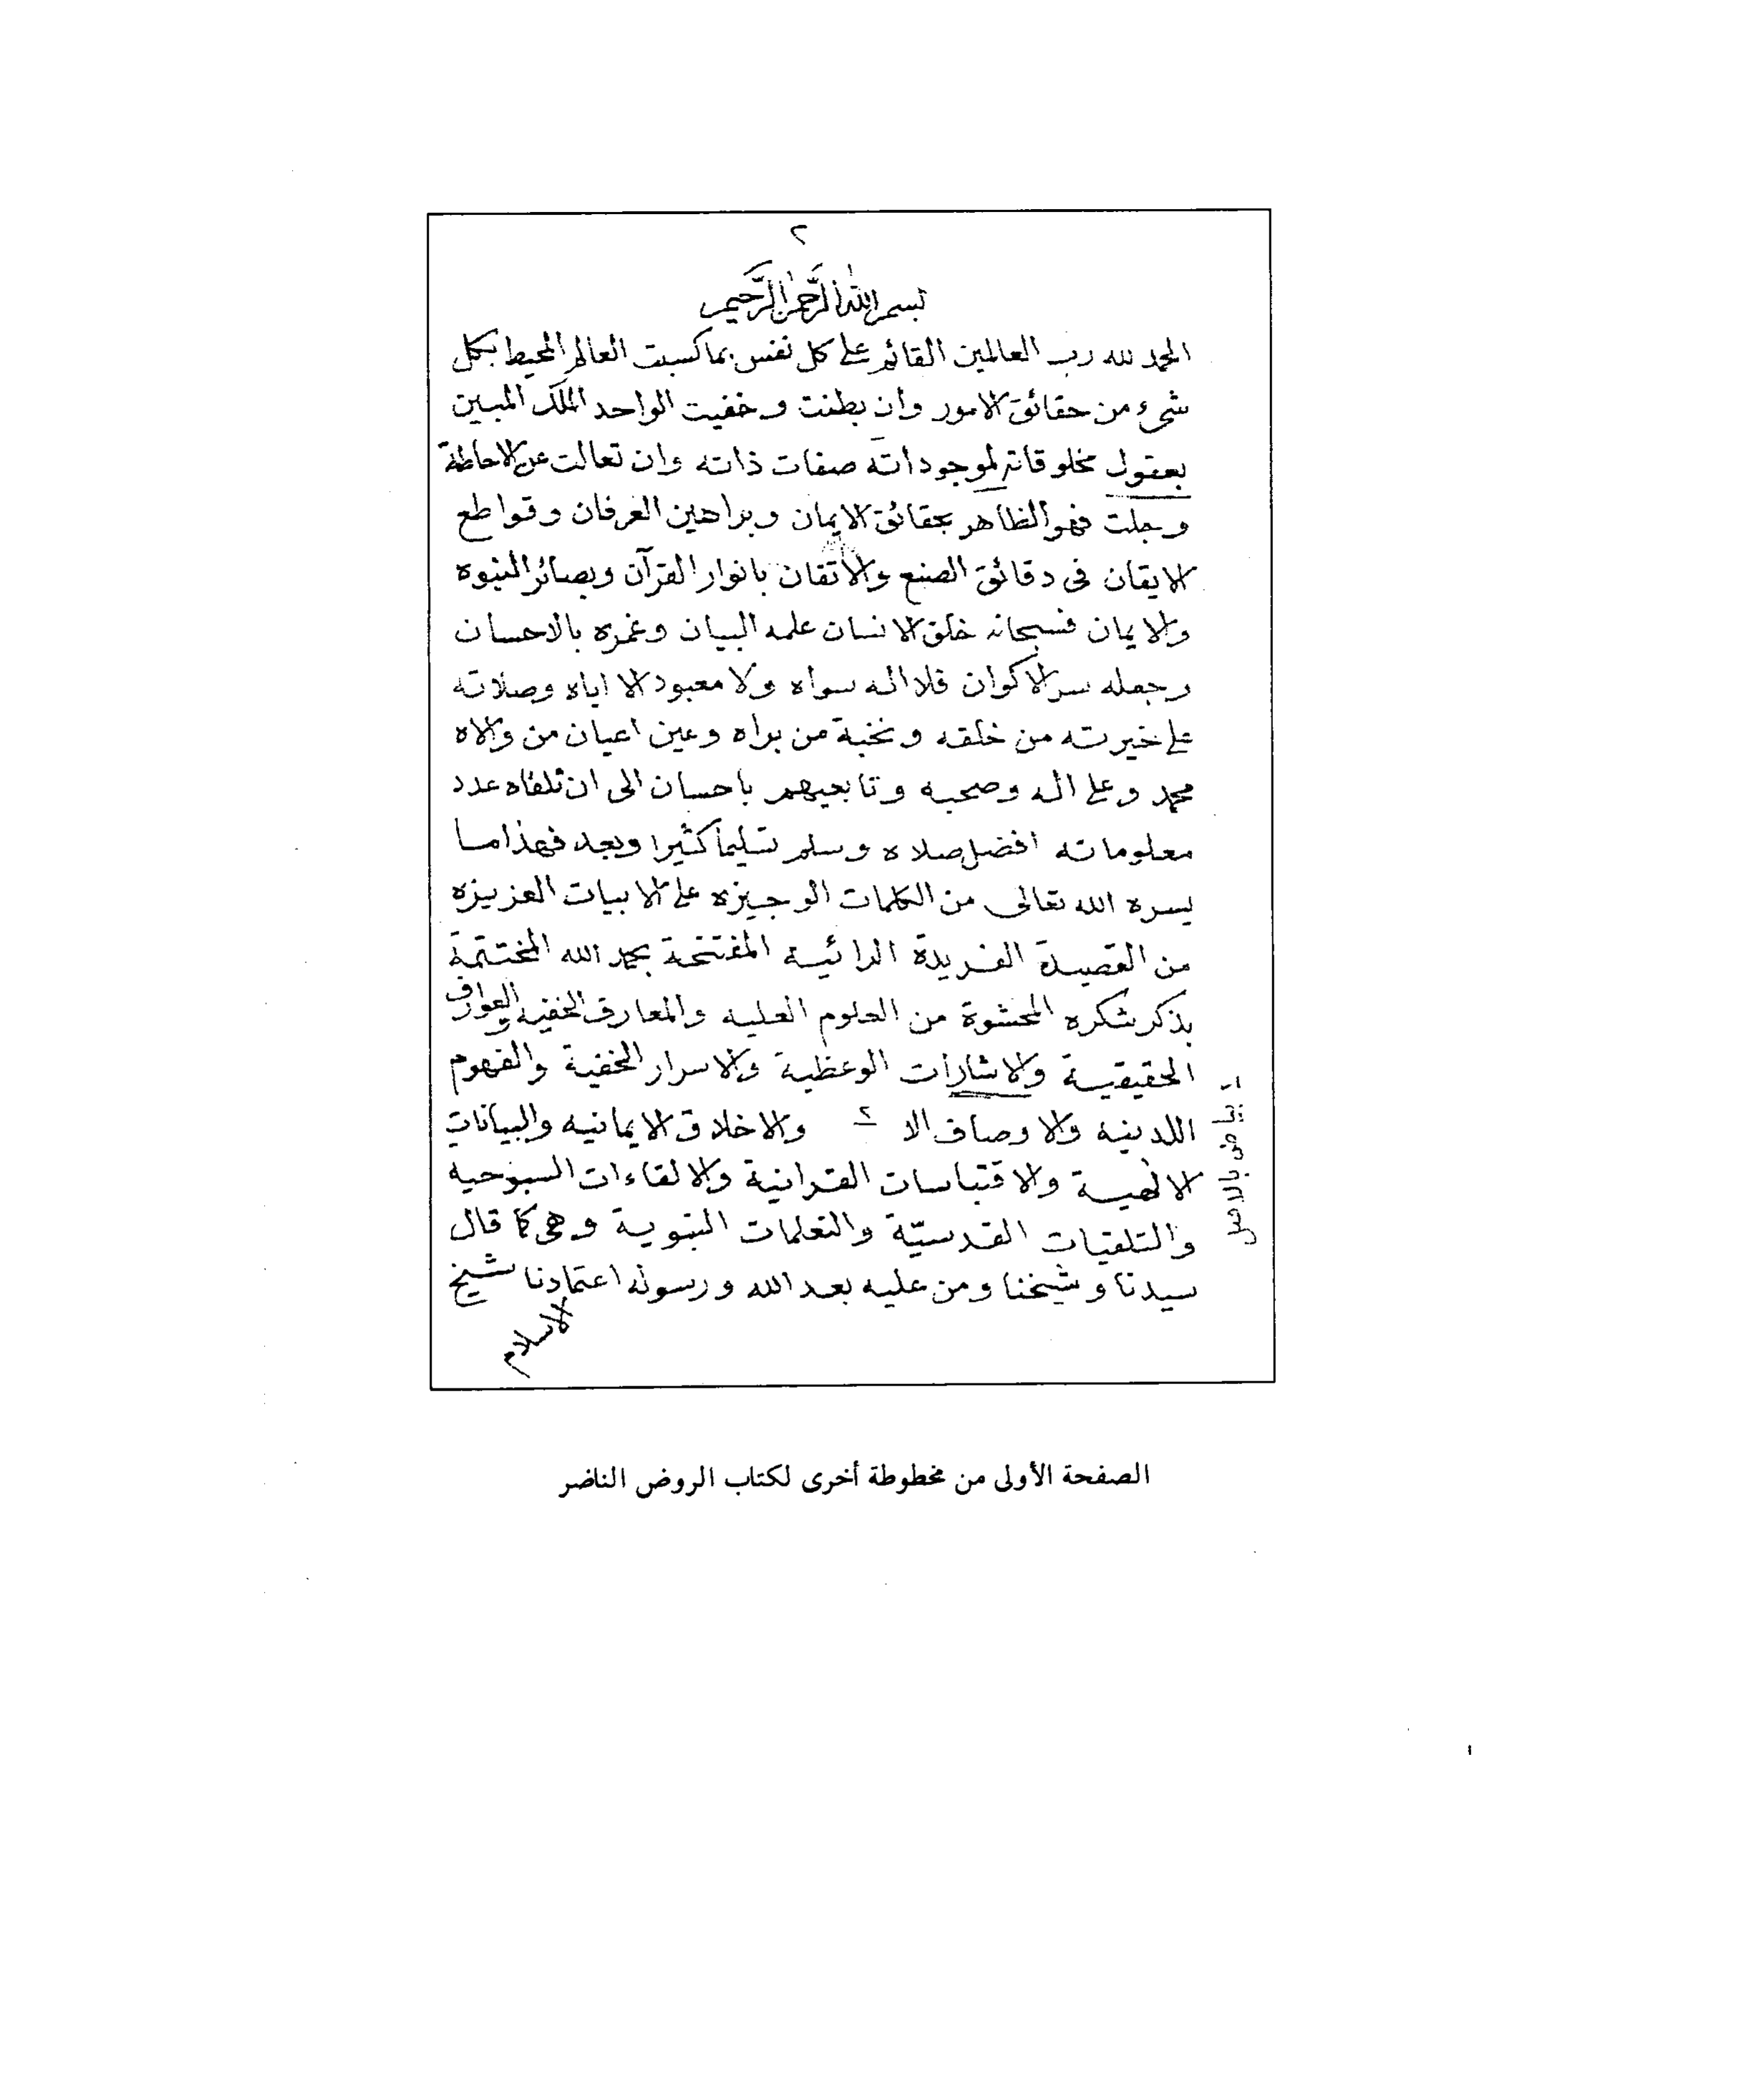 ٢
بسم الله الرَّحمن الرَّحيم
الحمد لله رب العالمين القائم على كل نفس بما كسبت العالم المحيط بكل
شىء من حقائق الامور وان بطنت وخفيت الواحد الملك المبين
بعقول مخلوقاته لموجوداته صفات ذاته وان تعالت عن الاحاطة
وجلت فهو الظاهر بحقائق الايمان وبراهين العرفان وقواطع
الايقان فى دقائق الصنع والاتقان بانوار القرآن وبصائر النبوه
والايمان فسبحانه خلق الانسان علمه البيان وغمره بالاحسان
وجعله سر الاكوان فلا اله سواه ولا معبود الا اياه وصلاته
على خيرته من خلقه ونخبة من براه وعين اعيان من والاه
محمد وعلى اله وصحبه وتابعيهم باحسان الى ان تلقاه عدد
معلوماته افضل صلاه وسلم تسليما كثيرا وبعد فهذا ما
يسره الله تعالى من الكلمات الوجيزه على الابيات العزيزه
من القصيدة الفريدة الرائية المفتتحة بحمد الله المختتمة
بذكر شكره المحشوة من العلوم العليه والمعارف الخفيه والعوارف
الحقيقية والاشارات الوعظية والاسرار الخفية والفهوم
اللدينه والاوصاف الا ٢ والاخلاق الايمانيه والبيانات
الالهية والاقتباسات القرانية والالقاءات السبوحيه
والتلقيات القدسيّة والتعلمات النبوية وهى كما قال
سيدنا وشيخنا ومن عليه بعد الله ورسوله اعتمادنا شيخ
الاسلام
بياض بالاصل
الصفحة الأولى من مخطوطة أخرى لكتاب الروض الناضر